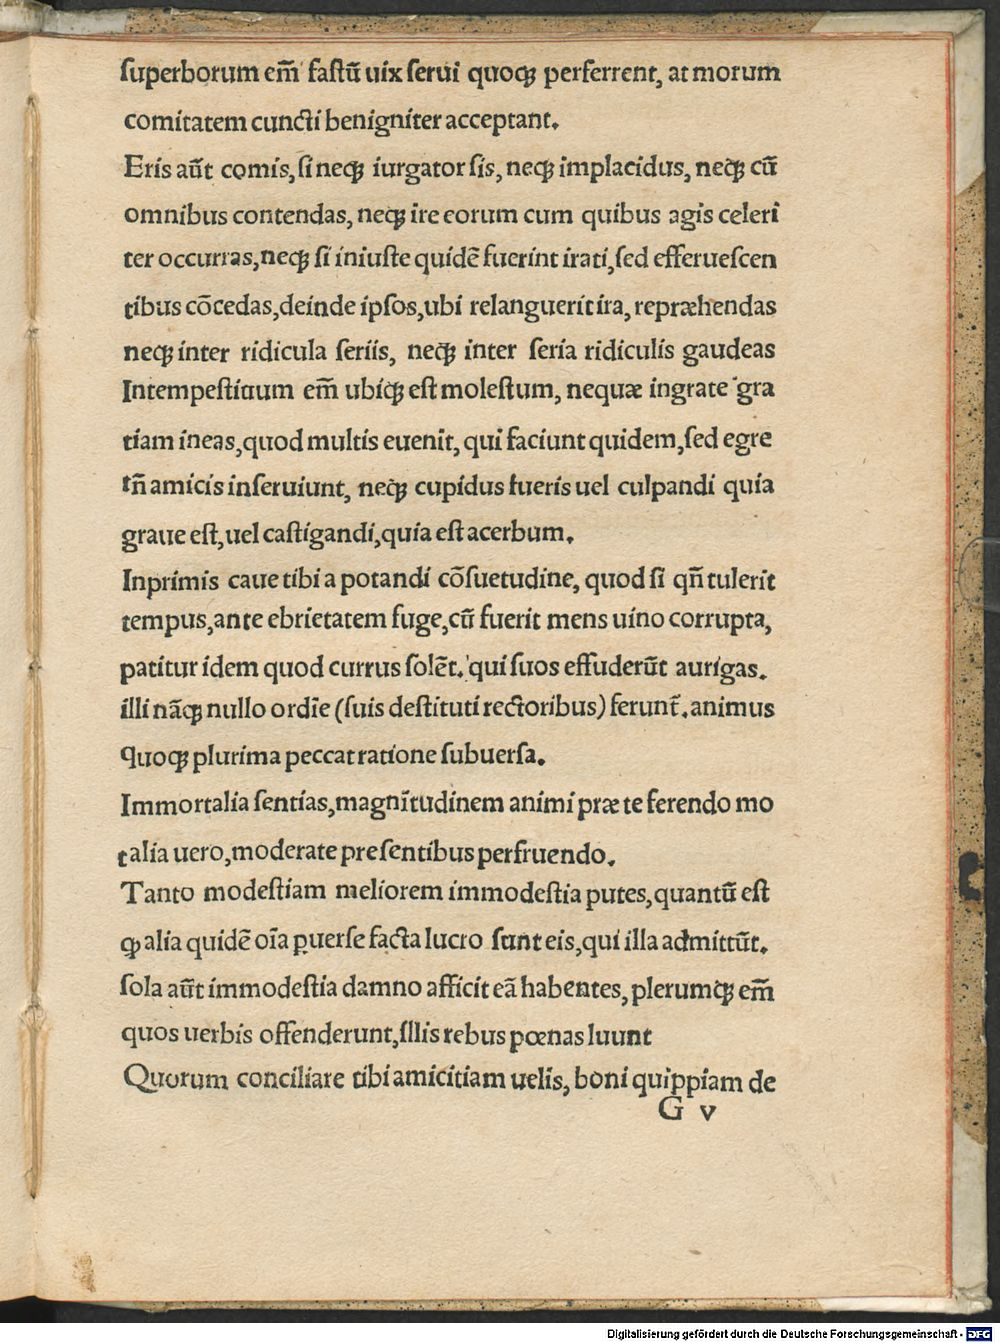 superborum em̃ fastū uix serui quoqꝫ perferrent, at morum
comitatem cuncti benigniter acceptant.
Eris aūt comis, si neqꝫ iurgator sis, neqꝫ implacidus, neqꝫ cū
omnibus contendas, neqꝫ ire eorum cum quibus agis celeri
ter occurras, neqꝫ si iniuste quidē fuerint irati, sed efferuescen
tibus cōcedas, deinde ipsos, ubi relanguerit ira, repræhendas
neqꝫ inter ridicula seriis, neqꝫ inter seria ridiculis gaudeas
Intempestiuum em̃ ubiqꝫ est molestum, nequæ ingrate gra
tiam ineas, quod multis euenit, qui faciunt quidem, sed egre
tñ amicis inseruiunt, neqꝫ cupidus fueris uel culpandi quia
graue est, uel castigandi, quia est acerbum.
Inprimis caue tibi a potandi cōsuetudine, quod si qñ tulerit
tempus, ante ebrietatem fuge, cū fuerit mens uino corrupta,
patitur idem quod currus solēt. qui suos effuderūt aurigas.
illi nāqꝫ nullo ordīe (suis destituti rectoribus) ferunt̃. animus
quoqꝫ plurima peccat ratione subuersa.
Immortalia sentias, magnītudinem animi præ te ferendo mo
talia uero, moderate presentibus perfruendo.
Tanto modestiam meliorem immodestia putes, quantū est
ꝙ alia quidē oīa ꝑuerse facta lucro sunt eis, qui illa admittūt.
sola aūt immodestia damno afficit eā habentes, plerumqꝫ em̃
quos uerbis offenderunt, illis rebus pœnas luunt
Quorum conciliare tibi amicitiam uelis, boni quippiam de
G v
Digitalisierung gefördert durch die Deutsche Forschungsgemeinschaft - DFG